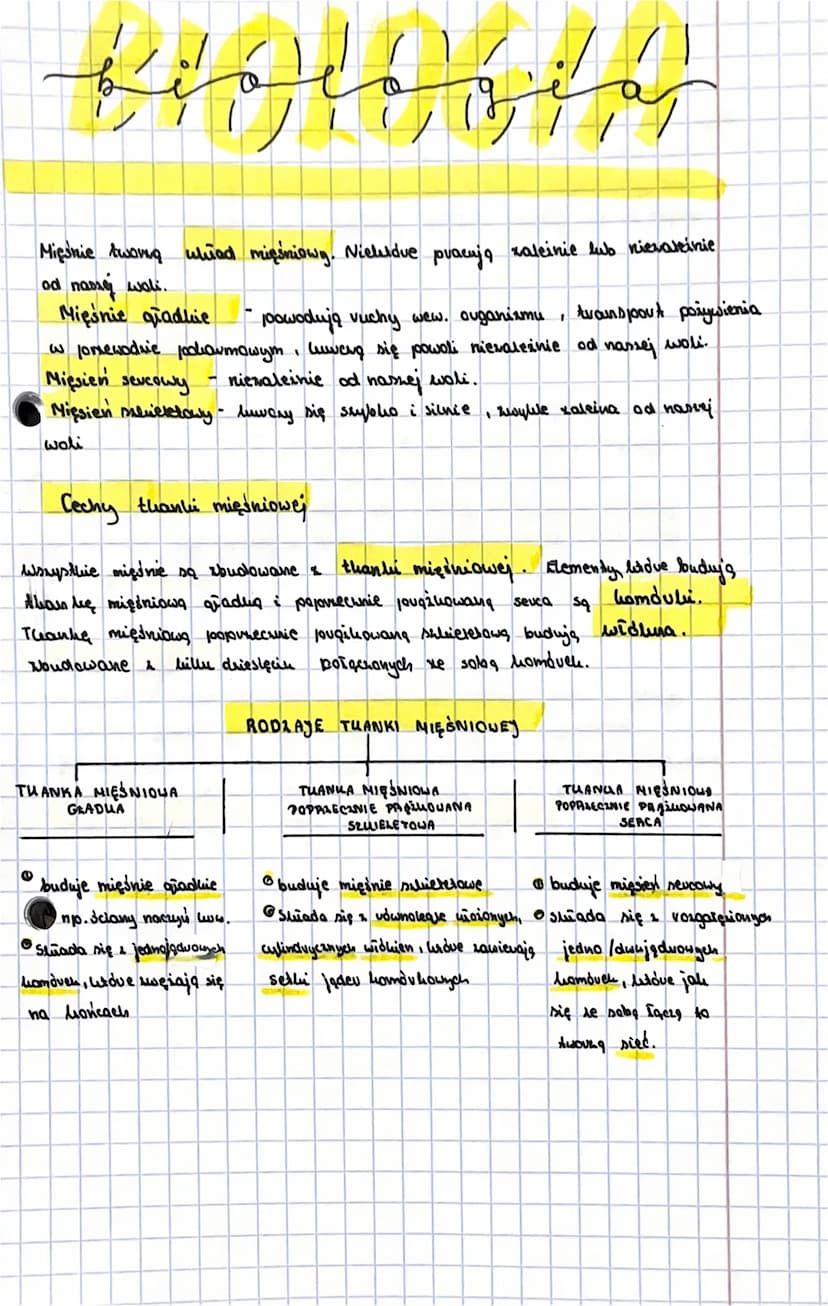 BIOLOGIA
biologia
Mięśnie tworzą układ mięśniowy. Niektóre pracują zależnie lub niezależnie
od naszej woli.
Mięśnie gładkie - powodują ruchy wew. organizmu, transport pożywienia
w przewodzie pokarmowym, kurczą się powoli niezależnie od naszej woli.
Mięsień sercowy - niezależnie od naszej woli.
Mięsień szkieletowy - kurczy się szybko i silnie, zwykle zależna od naszej
woli
Cechy tkanki mięśniowej
Wszystkie mięśnie są zbudowane z tkanki mięśniowej. Elementy które budują
tkankę mięśniową gładką i poprzecznie prążkowaną serca są komórki.
Tkankę mięśniową poprzecznie prążkowaną szkieletową budują włókna.
zbudowane z kilku dziesięciu połączonych ze sobą komórek.
RODZAJE TKANKI MIĘŚNIOWEJ
TKANKA MIĘŚNIOWA
GŁADKA
TKANKA MIĘŚNIOWA
POPRZECZNIE PRĄŻKOWANA
SZKIELETOWA
TKANKA MIĘŚNIOWA
POPRZECZNIE PRĄŻKOWANA
SERCA
buduje mięśnie gładkie
np. ściany naczyń krw.
składa się z jednojądrowych
komórek, które zwężają się
na końcach
buduje mięśnie szkieletowe
składa się z równolegle ułożonych,
cylindrycznych włókien, które zawierają
setki jąder komórkowych
buduje mięsień sercowy
składa się z rozgałęzionych
jedno/dwujądrowych
komórek, które jak
się ze sobą łączą to
tworzą sieć.